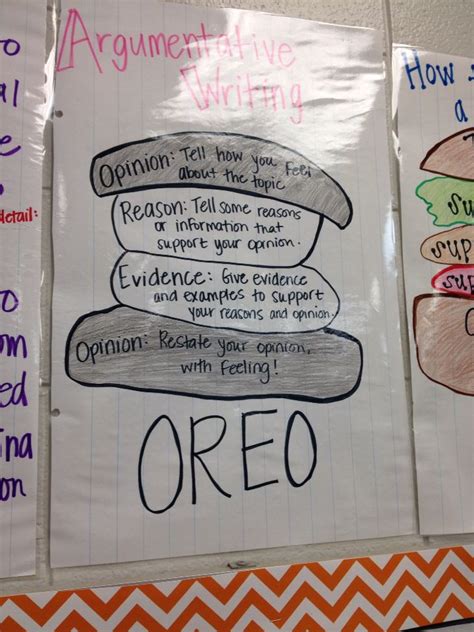 Argumentative
Writing
Opinion: Tell how you Feel
about the topic
Reason: Tell some reasons
or information that
support your opinion.
Evidence: Give evidence
and examples to support
your reasons and opinion.
Opinion: Restate your opinion,
with Feeling!
OREO
to
al
e
detail:
to
om
ed
ina
on
How
a
T
sup
sup
sup